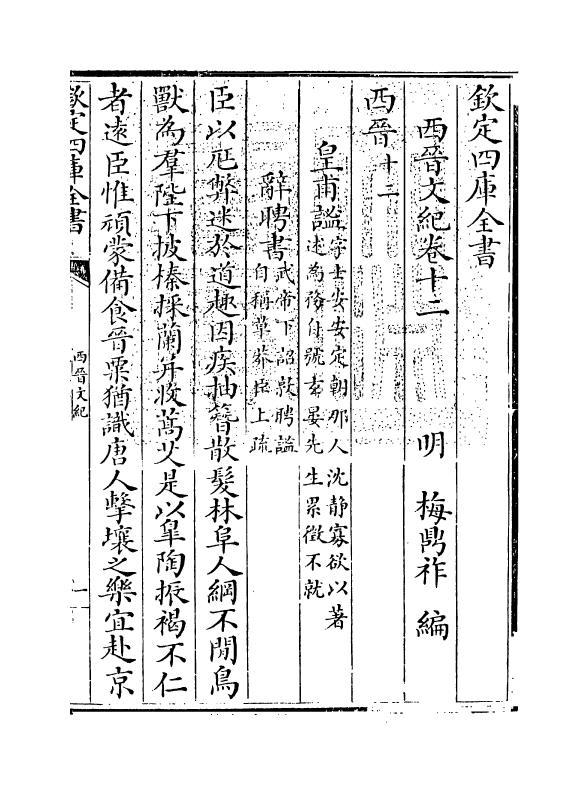 欽定四庫全書
西晉文紀卷十二
明 梅鼎祚 編
西晉十二
皇甫謐字士安安定朝那人沈靜寡欲以著
述為務自號玄晏先生累徵不就
辭聘書武帝下詔敦聘謐
自稱草莽臣上疏
臣以尫弊迷於道趣因疾抽簪散髮林阜人綱不閒鳥
獸為羣陛下披榛採蘭并收蒿艾是以皐陶振褐不仁
者遠臣惟頑蒙備食晉粟猶識唐人擊壤之樂宜赴京
欽定四庫全書
西晉文紀
一